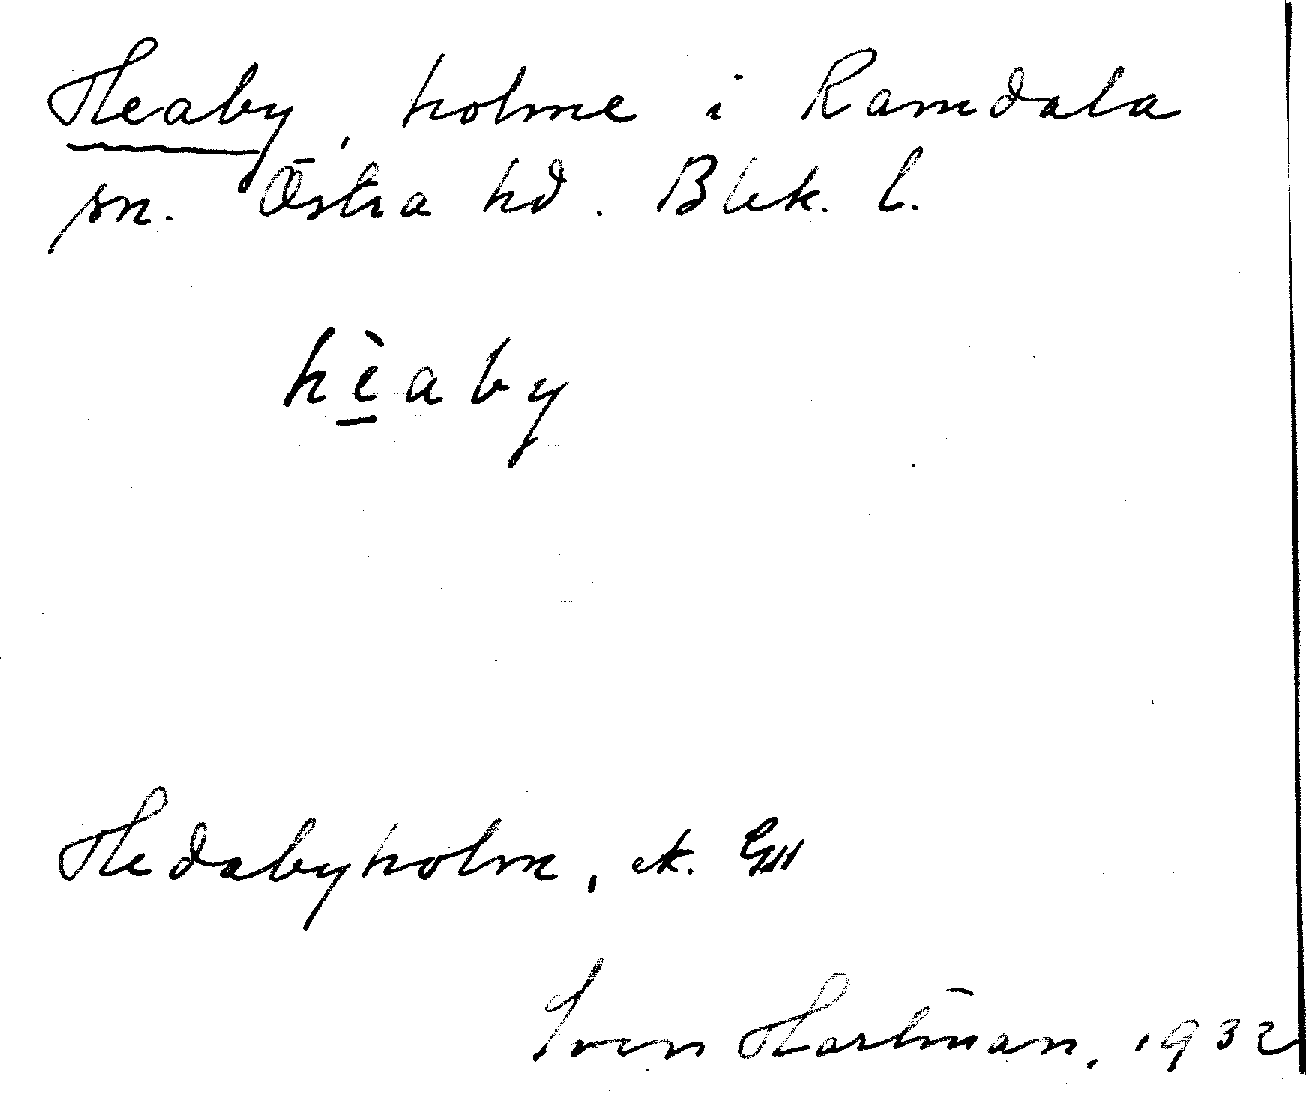 Heaby, holme i Ramdala
sn. Östra hd. Blek. l.
hèaby
Hedabyholm, ek.
Sven Hartman, 1932